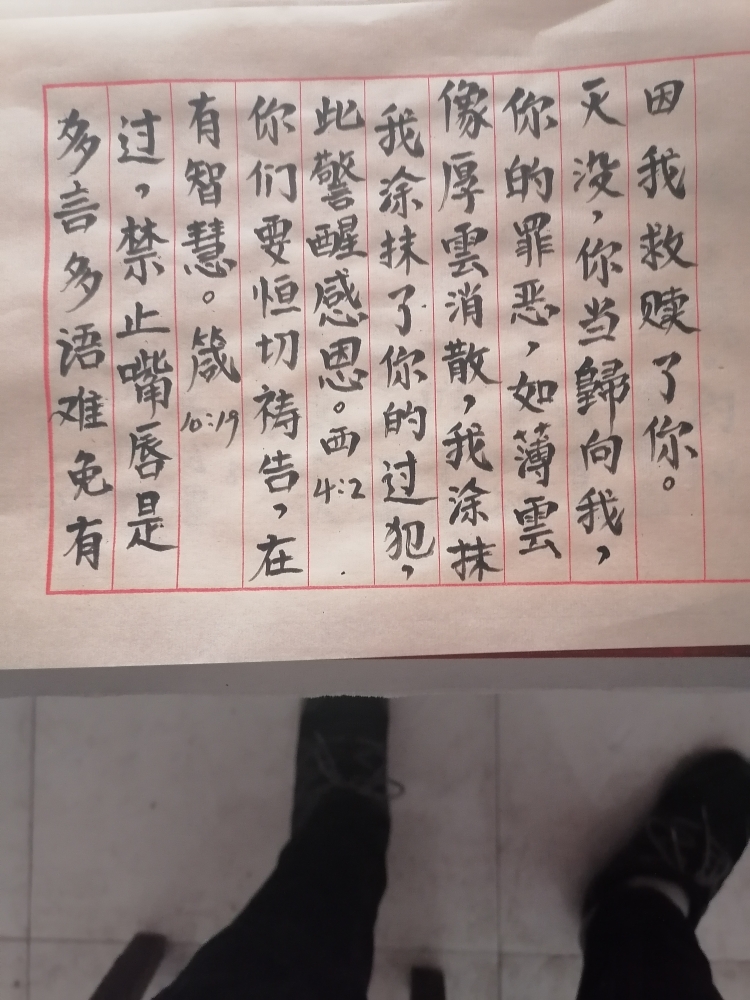 多言多语难免有
过，禁止嘴唇是
有智慧。箴10:19
你们要恒切祷告，在
此警醒感恩。西4:2
我涂抹了你的过犯，
像厚雲消散，我涂抹
你的罪恶，如薄雲
灭没，你当歸向我，
因我救赎了你。